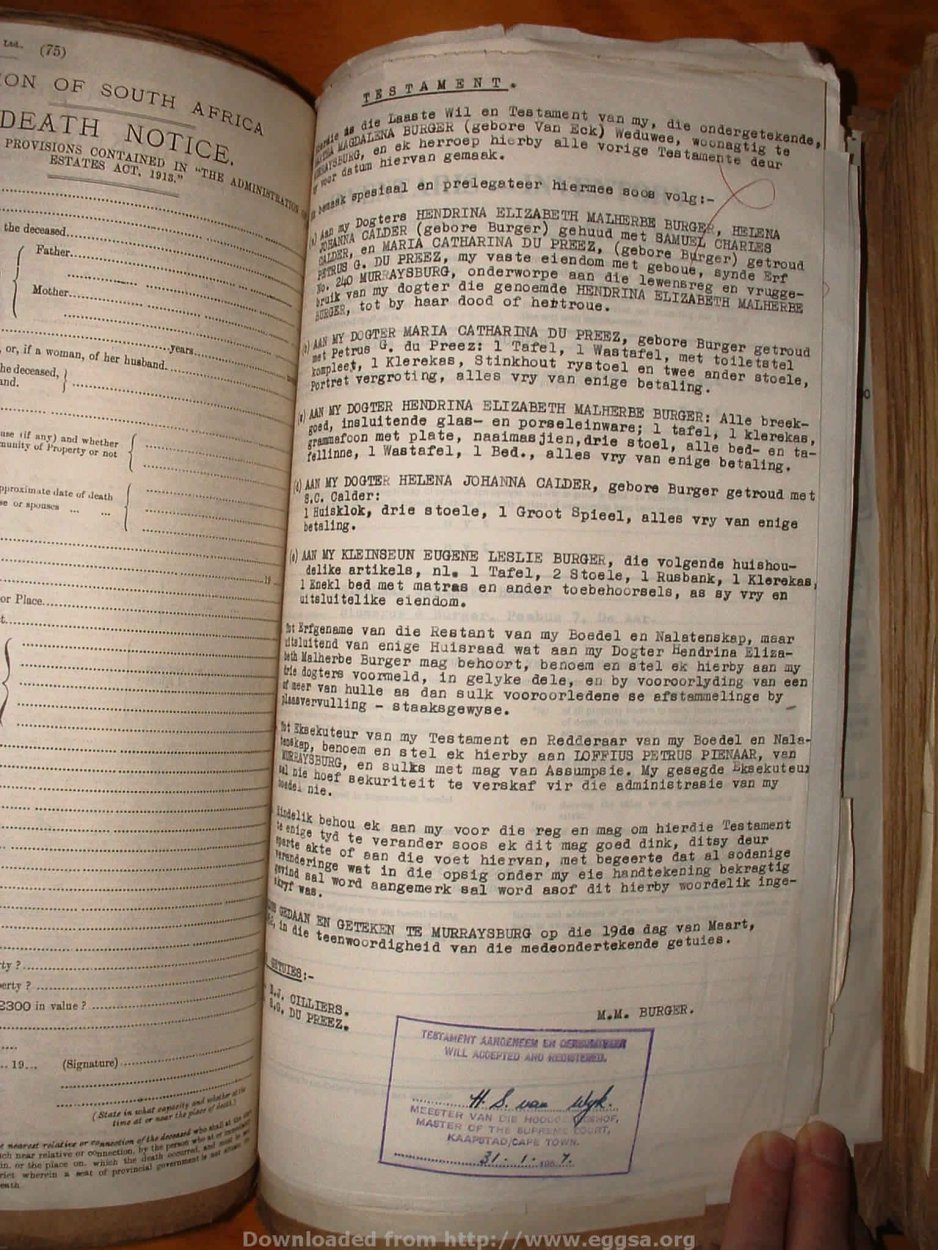 Ltd. (75)
ION OF SOUTH AFRICA
DEATH NOTICE.
PROVISIONS CONTAINED IN "THE ADMINISTRATION
ESTATES ACT, 1913."
the deceased
Father
Mother
years
or, if a woman, of her husband
he deceased,
and.
use (if any) and whether
munity of Property or not
pproximate date of death
se or spouses
19
or Place
t
ty ?
erty ?
£300 in value ?
19... (Signature)
(State in what capacity and whether at the
time at or near the place of death.)
e nearest relative or connection of the deceased who shall at the
ch near relative or connection, by the person who at or
in, or the place on, which the death occurred, and must
rict wherein a seat of provincial government is not
eath
TESTAMENT.
Hierdie is die Laaste Wil en Testament van my, die ondergetekende,
MAGDALENA BURGER (gebore Van Eck) Weduwee, woonagtig te
MURRAYSBURG, en ek herroep hierby alle vorige Testamente deur
my voor datum hiervan gemaak.
Ek bemaak spesiaal en prelegateer hiermee soos volg:-
(a) Aan my Dogters HENDRINA ELIZABETH MALHERBE BURGER, HELENA
JOHANNA CALDER (gebore Burger) gehuud met SAMUEL CHARLES
CALDER, en MARIA CATHARINA DU PREEZ, (gebore Burger) getroud
PETRUS G. DU PREEZ, my vaste eiendom met geboue, synde Erf
No. 240 MURRAYSBURG, onderworpe aan die lewensreg en vrugge-
bruik van my dogter die genoemde HENDRINA ELIZABETH MALHERBE
BURGER, tot by haar dood of hertroue.
(b) AAN MY DOGTER MARIA CATHARINA DU PREEZ, gebore Burger getroud
met Petrus G. du Preez: 1 Tafel, 1 Wastafel, met toiletstel
kompleet, 1 Klerekas, Stinkhout rystoel en twee ander stoele,
Portret vergroting, alles vry van enige betaling.
(c) AAN MY DOGTER HENDRINA ELIZABETH MALHERBE BURGER: Alle breek-
goed, insluitende glas- en porseleinware; 1 tafel, 1 klerekas,
grammafoon met plate, naaimasjien, drie stoel, alle bed- en ta-
fellinne, 1 Wastafel, 1 Bed., alles vry van enige betaling.
(d) AAN MY DOGTER HELENA JOHANNA CALDER, gebore Burger getroud met
S.C. Calder:
1 Huisklok, drie stoele, 1 Groot Spieel, alles vry van enige
betaling.
(e) AAN MY KLEINSEUN EUGENE LESLIE BURGER, die volgende huishou-
delike artikels, nl. 1 Tafel, 2 Stoele, 1 Rusbank, 1 Klerekas,
1 Enekl bed met matras en ander toebehoorsels, as sy vry en
uitsluitelike eiendom.
Tot Erfgename van die Restant van my Boedel en Nalatenskap, maar
uitsluitend van enige Huisraad wat aan my Dogter Hendrina Eliza-
beth Malherbe Burger mag behoort, benoem en stel ek hierby aan my
drie dogters voormeld, in gelyke dele, en by vooroorlyding van een
of meer van hulle as dan sulk vooroorledene se afstammelinge by
plaasvervulling - staaksgewyse.
Tot Eksekuteur van my Testament en Redderaar van my Boedel en Nala-
tenskap, benoem en stel ek hierby aan LOFFIUS PETRUS PIENAAR, van
MURRAYSBURG, en sulks met mag van Assumpsie. My gesegde Eksekuteur
sal nie hoef sekuriteit te verskaf vir die administrasie van my
boedel nie.
Eindelik behou ek aan my voor die reg en mag om hierdie Testament
te enige tyd te verander soos ek dit mag goed dink, ditsy deur
aparte akte of aan die voet hiervan, met begeerte dat al sodanige
veranderinge wat in die opsig onder my eie handtekening bekragtig
gevind sal word aangemerk sal word asof dit hierby woordelik inge-
skryf was.
GEDAAN EN GETEKEN TE MURRAYSBURG op die 19de dag van Maart,
in die teenwoordigheid van die medeondertekende getuies.
GETUIES:-
CILLIERS.
DU PREEZ.
M.M. BURGER.
TESTAMENT AANGENEEM EN GEREGISTREER
WILL ACCEPTED AND REGISTERED.
H. S. van Wyk.
MEESTER VAN DIE HOOGGEREGSHOF,
MASTER OF THE SUPREME COURT,
KAAPSTAD/CAPE TOWN.
31 . 1 . 1957.
Downloaded from http://www.eggsa.org